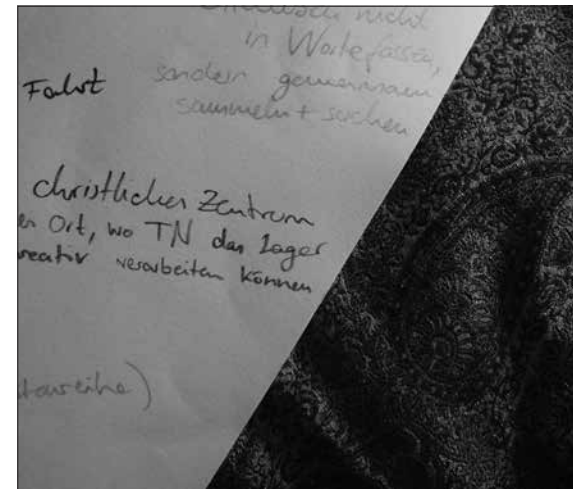 nicht
in Worte fassen,
sondern gemeinsam
sammeln + suchen
Fahrt
christliches Zentrum
en Ort, wo TN das Lager
kreativ verarbeiten können